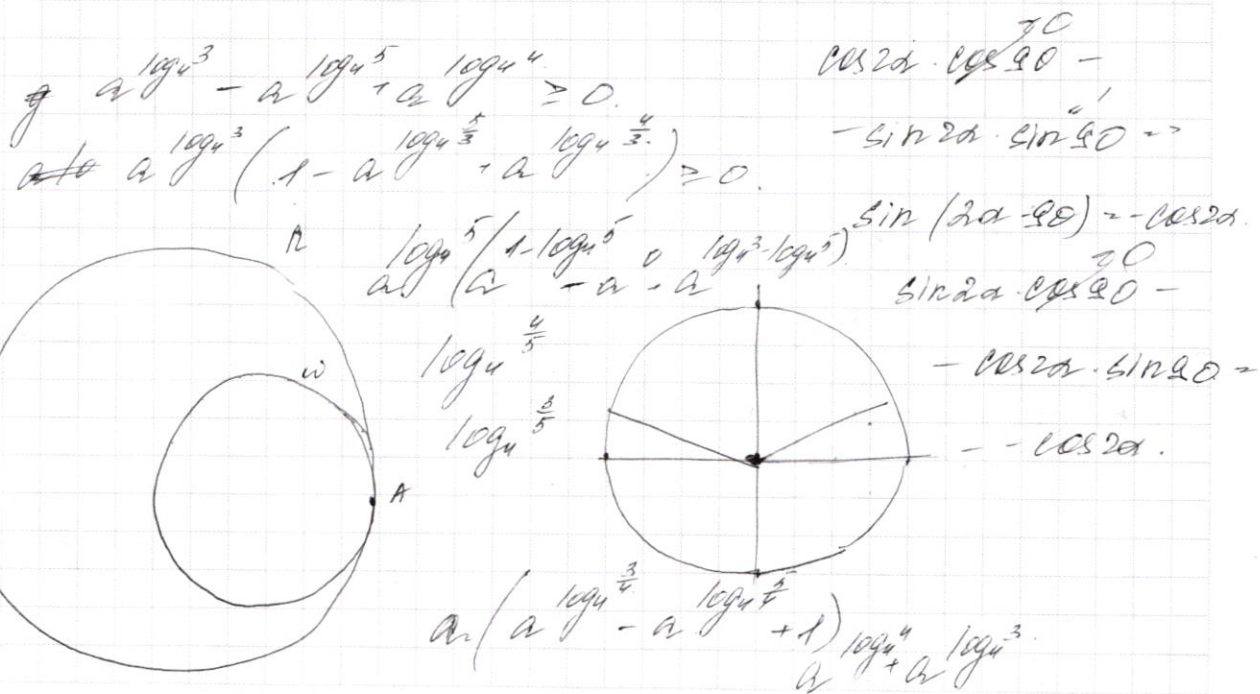 a^{log₄3} - a^{log₄5} + a^{log₄4} ≥ 0.
a^{log₄3} (1 - a^{log₄ 5/3} + a^{log₄ 4/3}) ≥ 0.
a^{log₄5} (a^{1-log₄5} - a^0 + a^{log₄3-log₄5})
log₄ 4/5
log₄ 3/5
R
ω
A
a (a^{log₄ 3/4} - a^{log₄ 5/4} + 1)
a^{log₄4} + a^{log₄3}
=0
cos2α · cos90 -
"1
- sin2α · sin90 =
sin (2α - 90) = -cos2α.
=0
sin2α · cos90 -
- cos2α · sin90 =
= - cos2α.